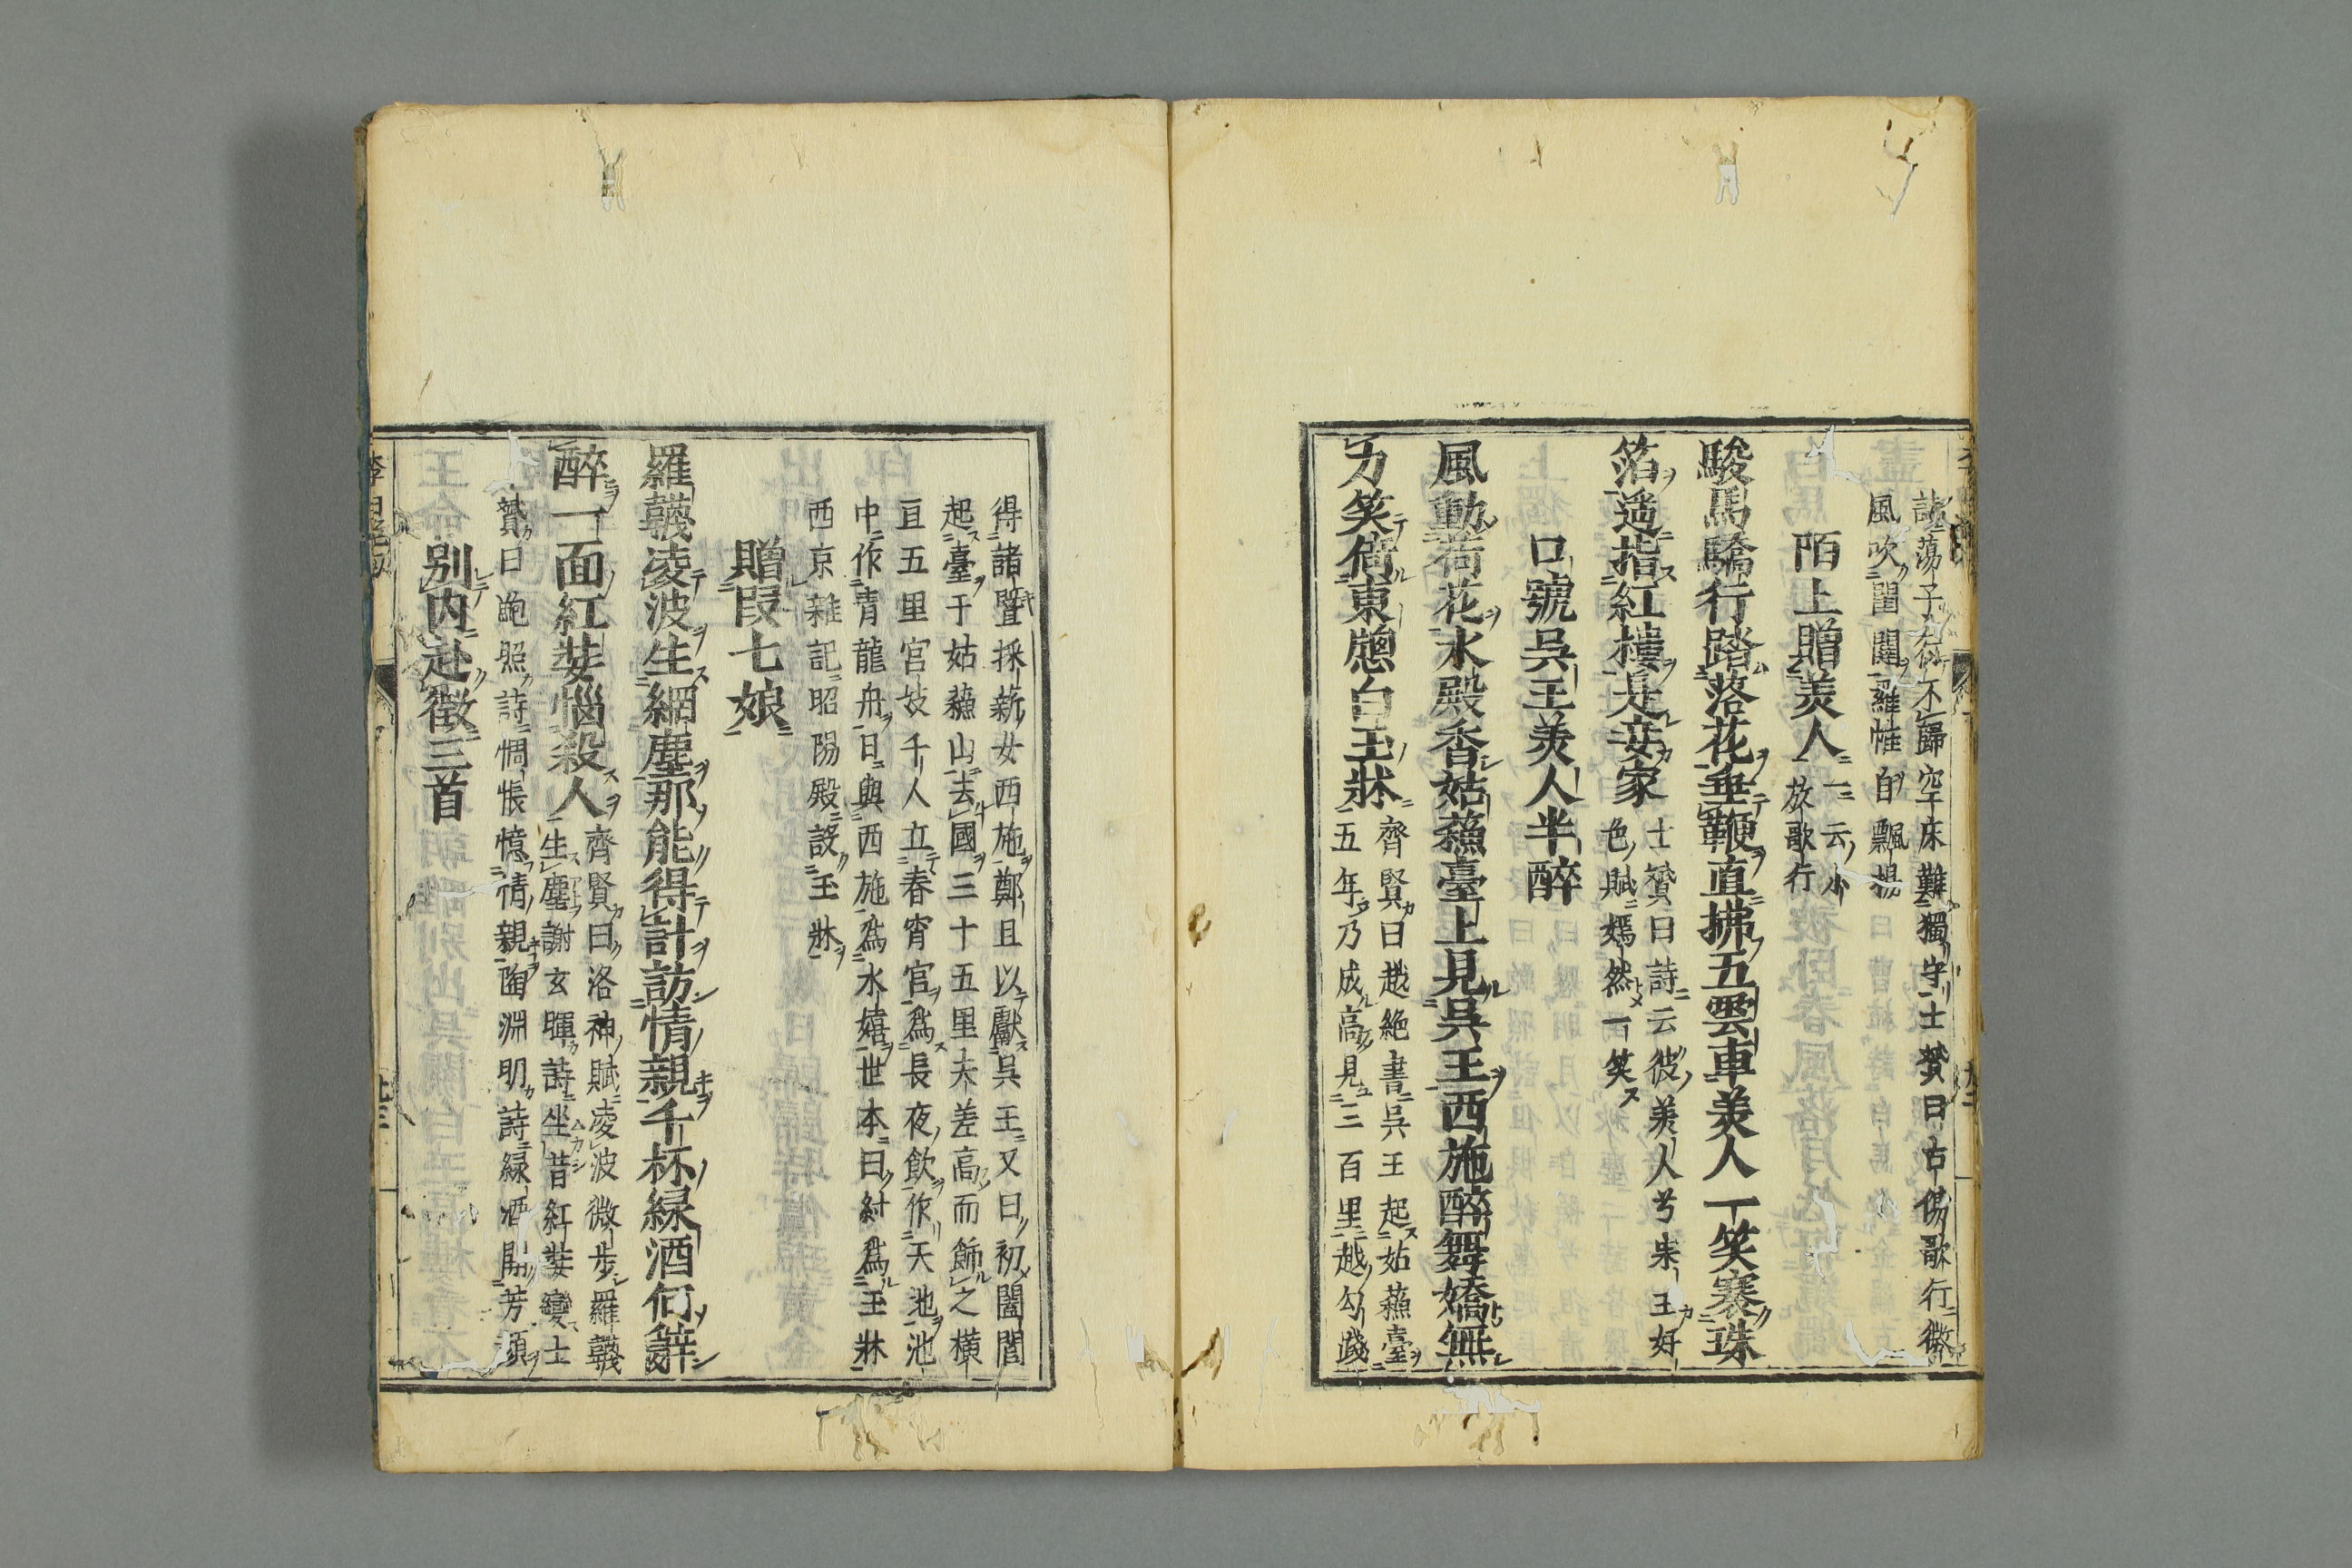 詩蕩子行不歸空床難獨守士贇曰古傷歌行微
風吹閨闥羅帷自飄揚
陌上贈美人一云小
放歌行
駿馬驕行踏落花垂鞭直拂五雲車美人一笑褰珠
箔遥指紅樓是妾家
士贇曰詩云彼美人兮朱玉好
色賦嫣然一笑
口號吳王美人半醉
風動荷花水殿香姑蘓臺上見吳王西施醉舞嬌無
力笑倚東牕白玉牀
齊賢曰越絶書吳王起姑蘓臺
五年乃成高見三百里越勾踐
得諸暨採薪女西施鄭旦以獻吳王又曰初闔閭
起臺于姑蘓山去國三十五里夫差高而飾之横
亘五里宮妓千人立春宵宮爲長夜飲作天池池
中作青龍舟日與西施爲水嬉世本曰紂爲玉牀
西京雜記昭陽殿設玉牀
贈段七娘
羅韈凌波生網塵那能得計訪情親千杯緑酒何辭
醉一面紅妝惱殺人
齊賢曰洛神賦凌波微步羅韈
生塵謝玄暉詩坐昔紅妝變士
贇曰鮑照詩惆悵憶情親陶淵明詩緑酒開芳顔
别内赴徵三首